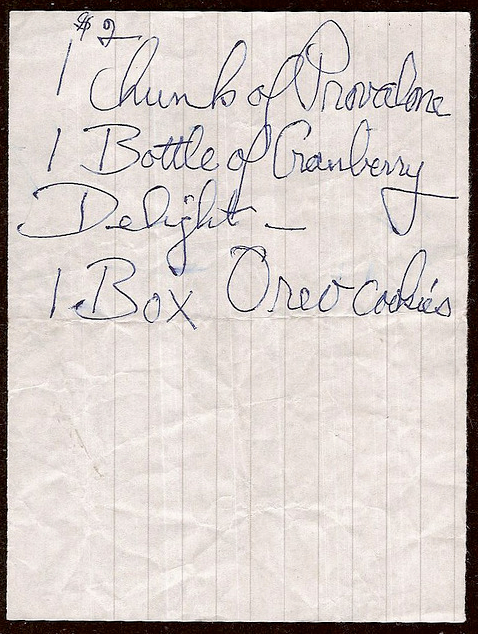 $2
1 Chunk of Provalone
1 Bottle of Cranberry
Delight -
1 Box Oreo cookies